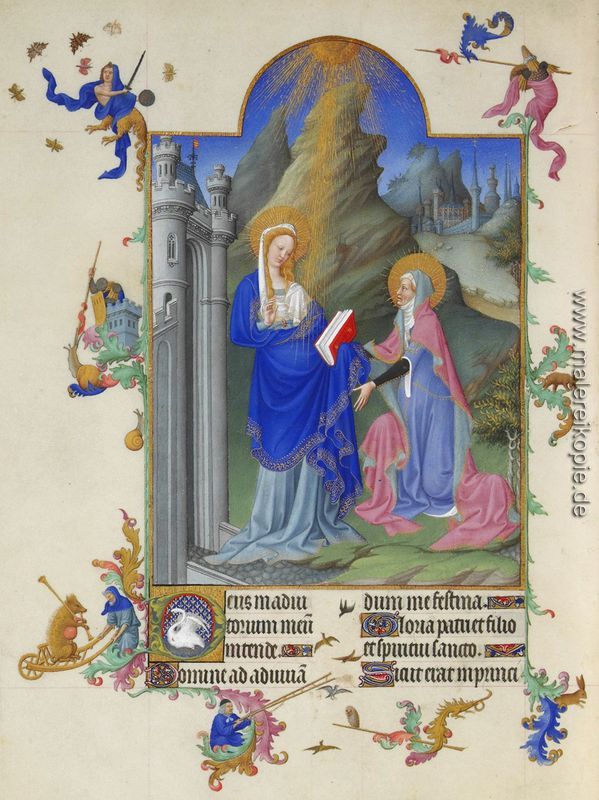 Deus in adiu
torium meū
intende.
Domine ad adiuuā
dum me festina.
Gloria patri et filio
et spiritui sancto.
Sicut erat in princi
www.malereikopie.de